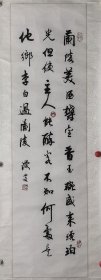 蘭陵美酒鬱金香玉碗盛来琥珀
光但使主人能醉客不知何處是
他鄉李白過蘭陵